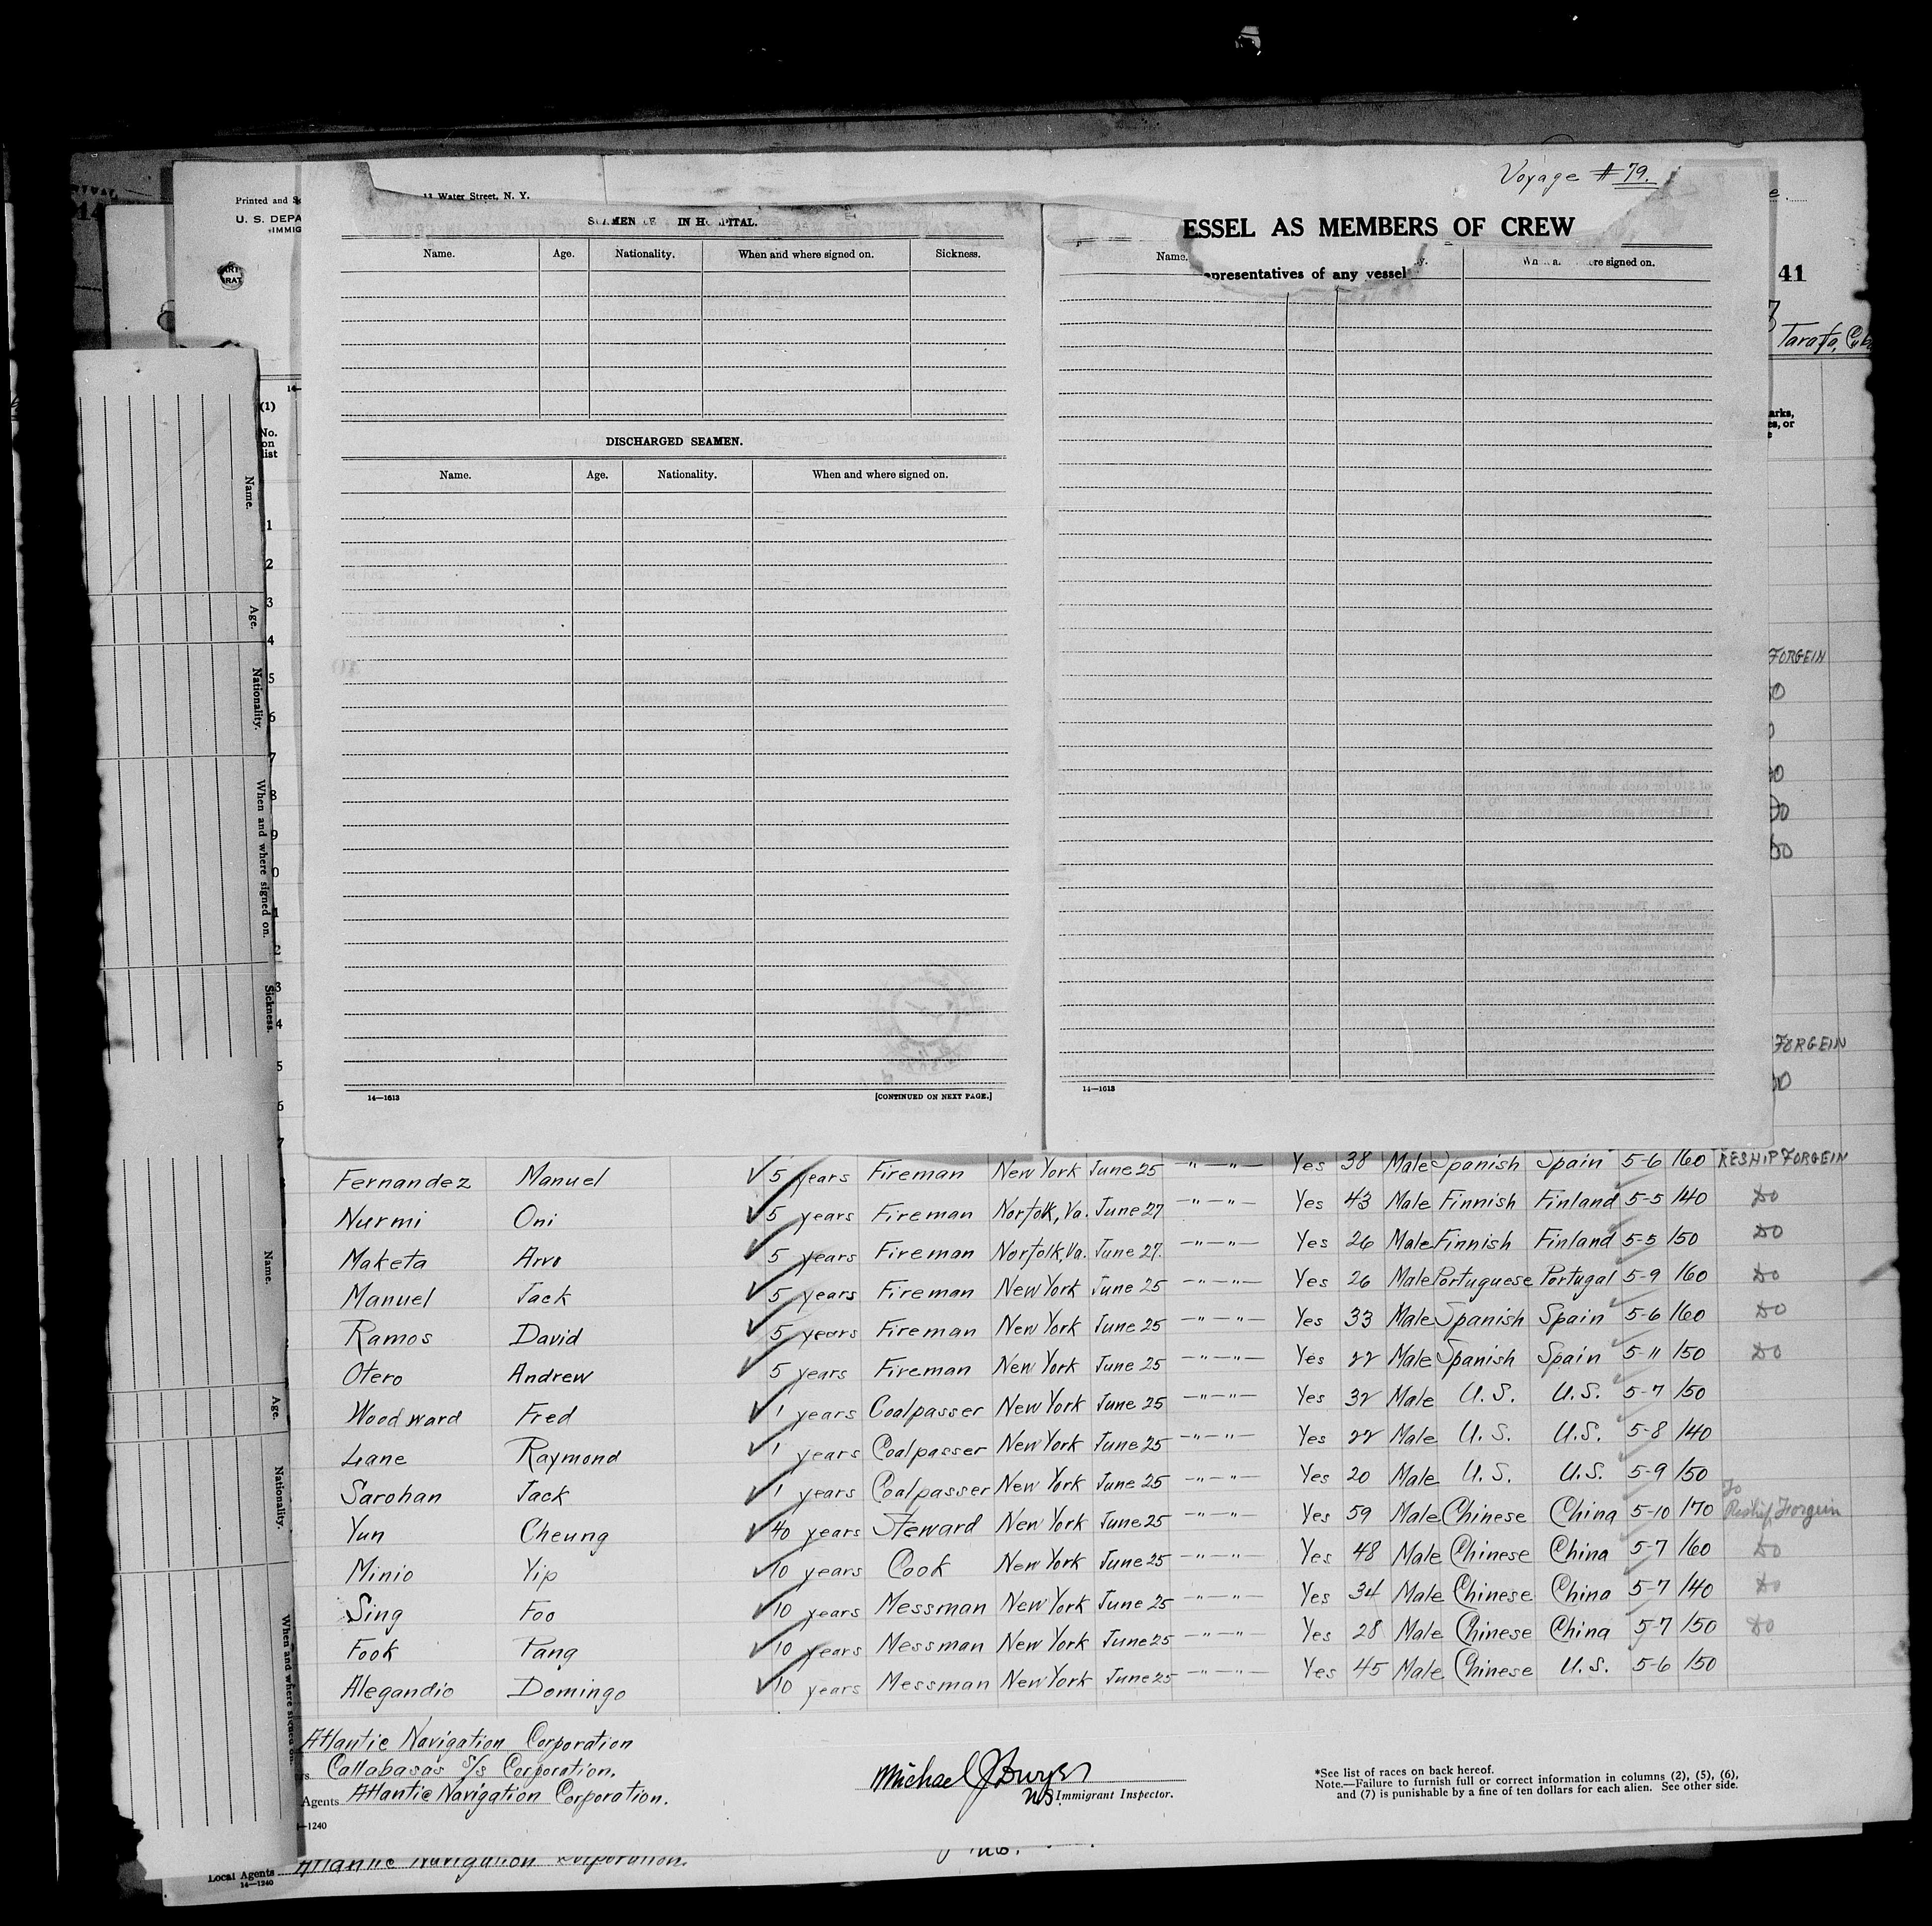 Voyage # 79.
Printed and
13 Water Street, N. Y.
U. S. DEPA
IMMIG
SEAMEN IN HOSPITAL.
Name. Age. Nationality. When and where signed on. Sickness.
ESSEL AS MEMBERS OF CREW
Name. re signed on.
epresentatives of any vessel
41
Tarafa, Cuba
(1)
No.
on
list
arks,
es, or
e
DISCHARGED SEAMEN.
Name. Age. Nationality. When and where signed on.
1
2
3
4
5
6
7
8
9
0
1
2
3
4
5
6
7
FORGEIN
DO
DO
DO
DO
FORGEIN
DO
14—1613 [CONTINUED ON NEXT PAGE.]
14—1613
Name.
Age.
Nationality.
When and where signed on.
Sickness.
Name.
Age.
Nationality.
When and where signed on.
Fernandez Manuel ✓ 5 years Fireman New York June 25 " — " — Yes 38 Male Spanish Spain 5-6 160 RESHIP FORGEIN
Nurmi Oni ✓ 5 years Fireman Norfolk, Va. June 27 " — " — Yes 43 Male Finnish Finland 5-5 140 DO
Maketa Arvo ✓ 5 years Fireman Norfolk, Va. June 27. " — " — Yes 26 Male Finnish Finland 5-5 150 DO
Manuel Jack ✓ 5 years Fireman New York June 25 " — " — Yes 26 Male Portuguese Portugal 5-9 160 DO
Ramos David ✓ 5 years Fireman New York June 25 " — " — Yes 33 Male Spanish Spain 5-6 160 DO
Otero Andrew ✓ 5 years Fireman New York June 25 " — " — Yes 22 Male Spanish Spain 5-11 150 DO
Woodward Fred ✓ 1 years Coalpasser New York June 25 " — " — Yes 32 Male U.S. U.S. 5-7 150
Lane Raymond ✓ 1 years Coalpasser New York June 25 " — " — Yes 22 Male U.S. U.S. 5-8 140
Sarohan Jack ✓ 1 years Coalpasser New York June 25 " — " — Yes 20 Male U.S. U.S. 5-9 150
Yun Cheung ✓ 40 years Steward New York June 25 " — " — Yes 59 Male Chinese China 5-10 170 To Reship Forgein
Minio Yip ✓ 10 years Cook New York June 25 " — " — Yes 48 Male Chinese China 5-7 160 DO
Sing Foo ✓ 10 years Messman New York June 25 " — " — Yes 34 Male Chinese China 5-7 140 DO
Fook Pang ✓ 10 years Messman New York June 25 " — " — Yes 28 Male Chinese China 5-7 150 DO
Alegandio Domingo ✓ 10 years Messman New York June 25 " — " — Yes 45 Male Chinese U.S. 5-6 150
Atlantic Navigation Corporation
rs Callabasas S/s Corporation.
Agents Atlantic Navigation Corporation.
—1240
Michael J Dwyer
U.S. Immigrant Inspector.
*See list of races on back hereof.
Note.—Failure to furnish full or correct information in columns (2), (5), (6),
and (7) is punishable by a fine of ten dollars for each alien. See other side.
Local Agents Atlantic Navigation Corporation.
14—1240